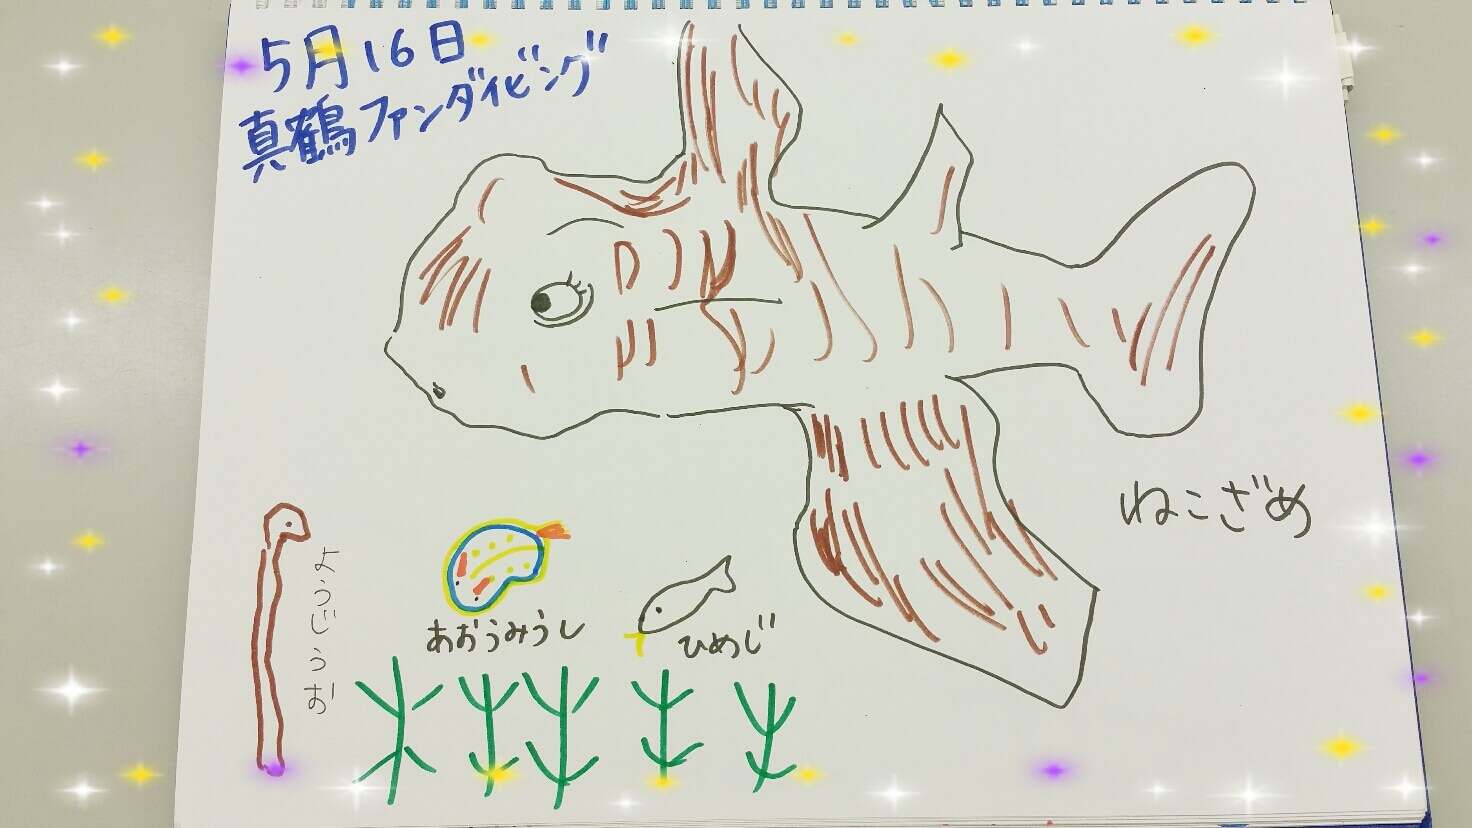 5月16日
真鶴ファンダイビング
ねこざめ
ようじうお
あおうみうし
ひめじ